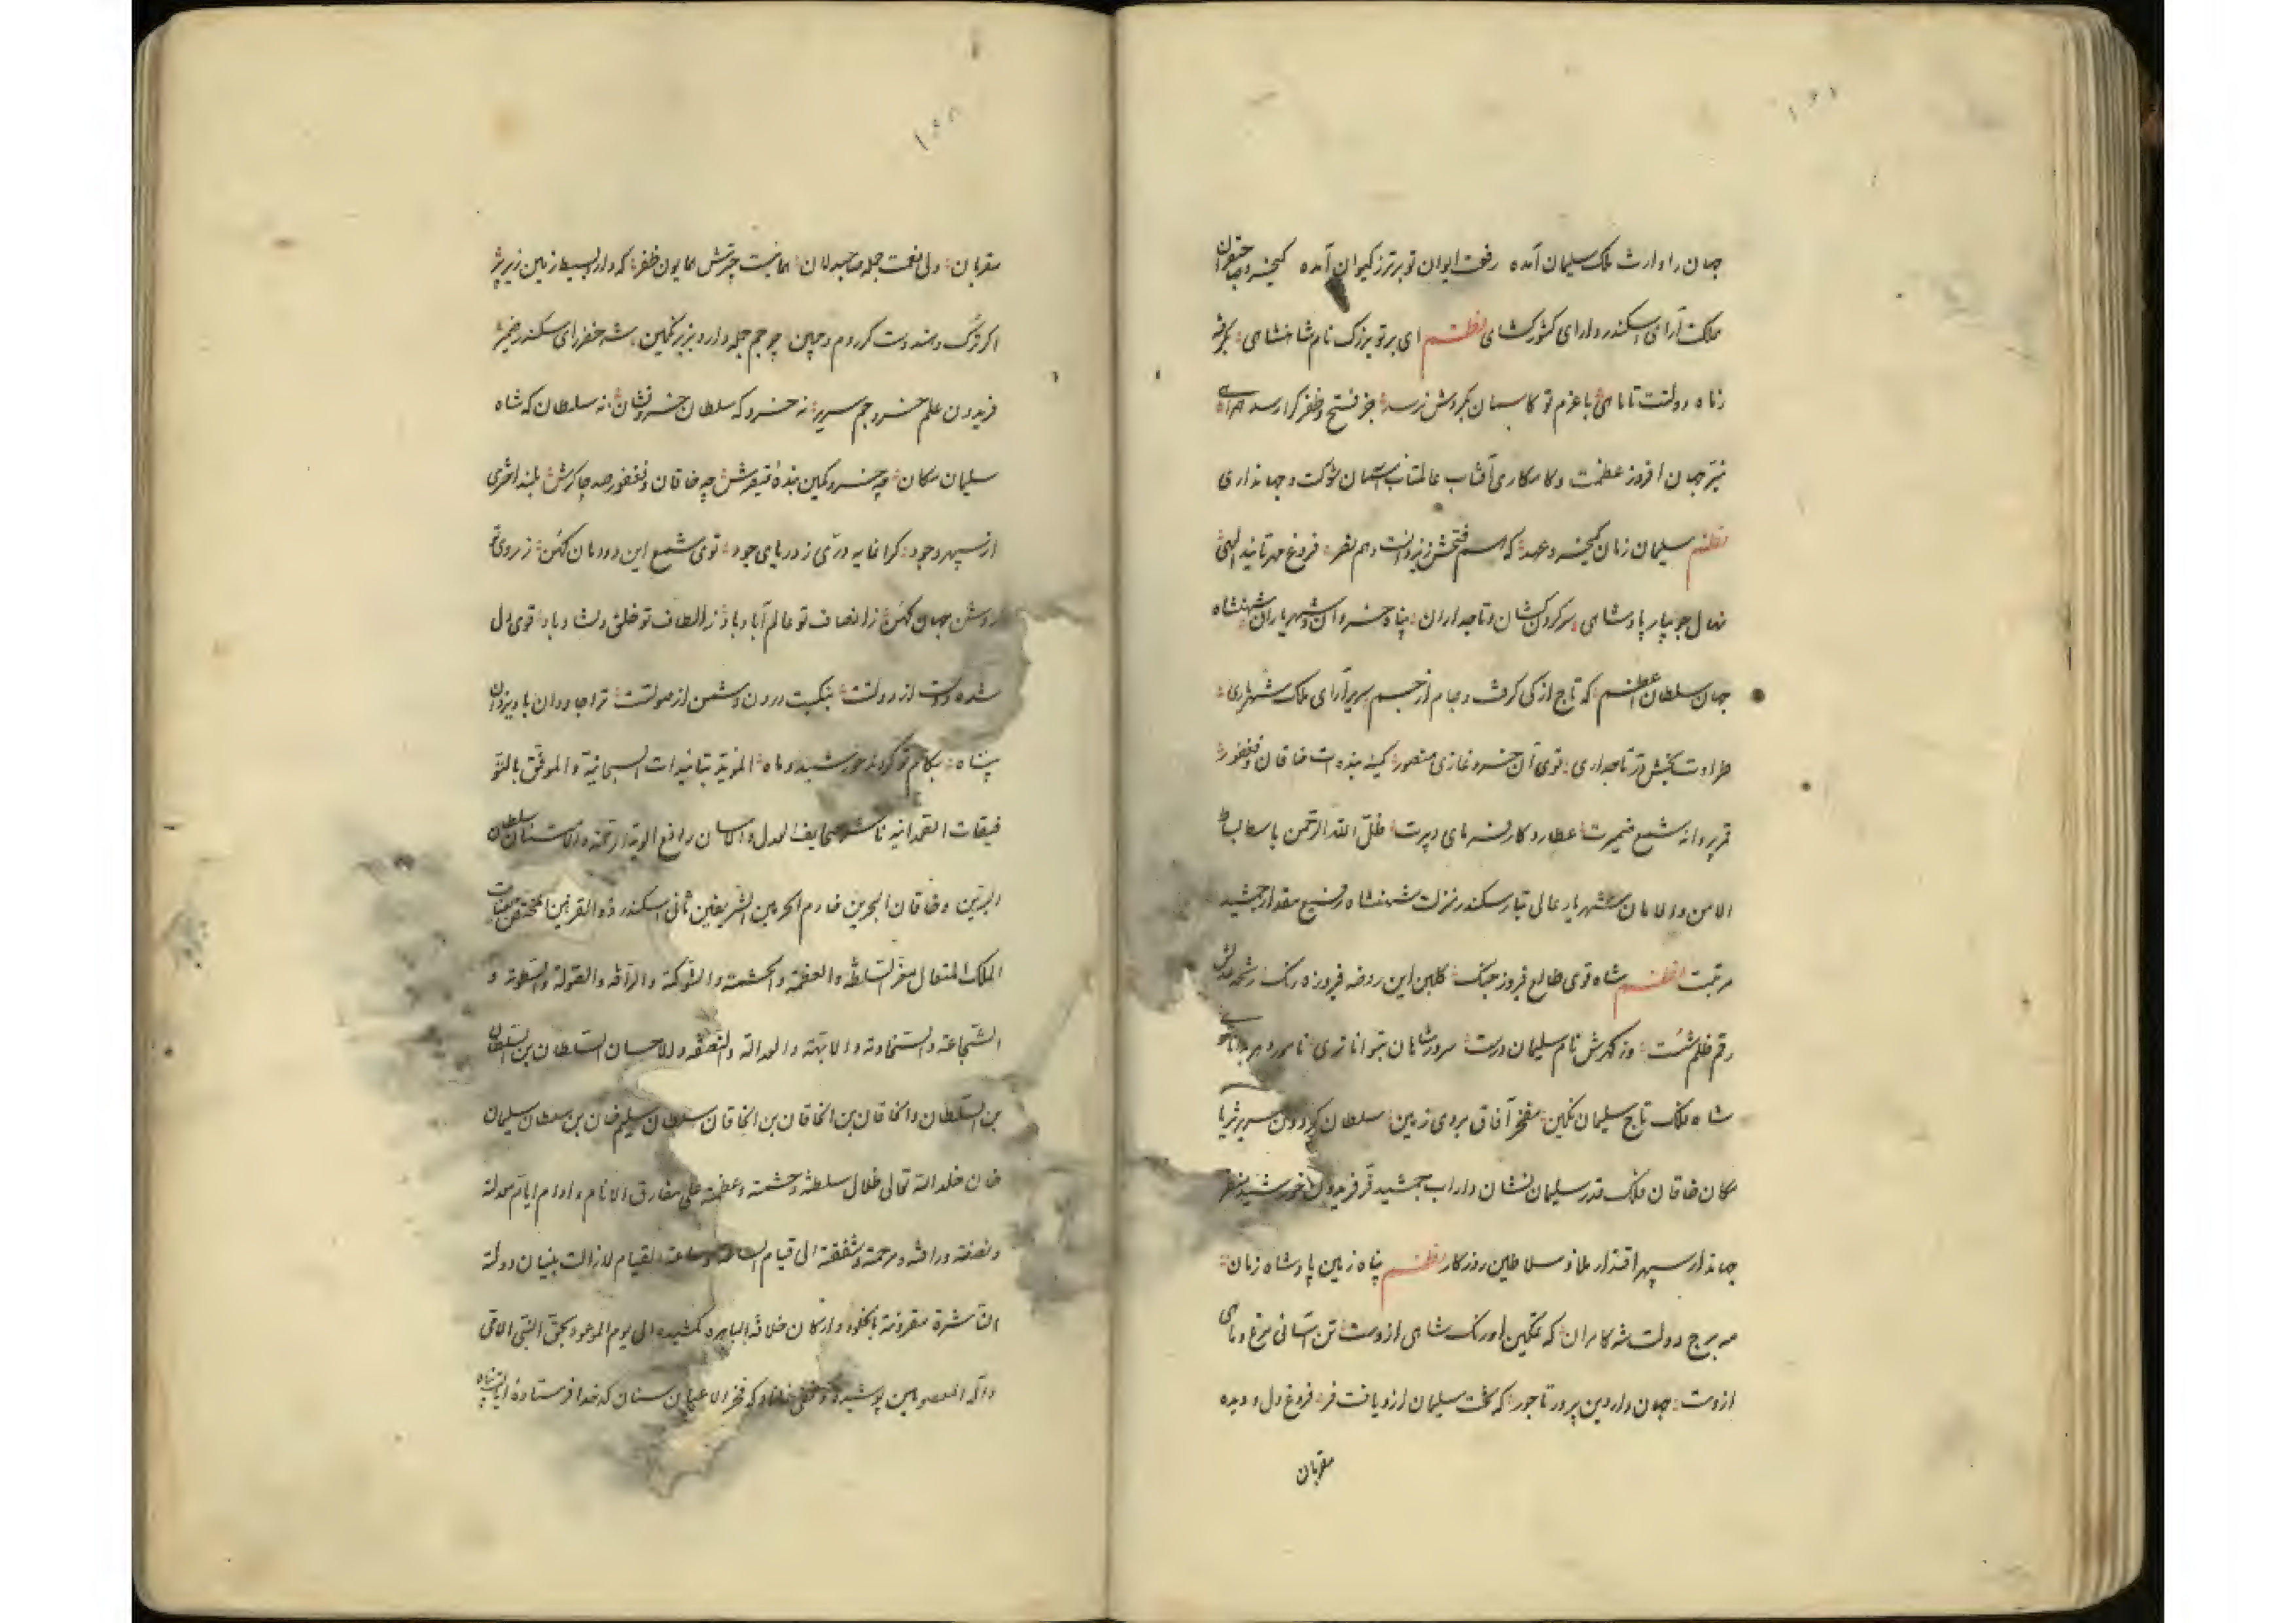 جهان را وارث ملک سلیمان آمده رفعت ایوان تو برتر ز کیوان آمده کیخسرو
ملکت آرای سکندر دارای کشورکشای نظم ای بر تو بزرک نام شاهنشاهی
ز ماه دولتت تا ماهی با عزم تو کاسمان بکردش نرسد جز فتح و ظفر کرا رسد همراهی
نیر جهان افروز عظمت و کامکاری آفتاب عالمتاب آسمان شوکت و جهانداری
نظم سلیمان زمان کیخسرو عهد که هم فتحش ز یزدانست و هم نصر فروغ مهر تایید الهی
نهال جویبار پادشاهی سر کردن کشان و تاجداران پناه خسروان و شهریاران شهنشاه
جهان سلطان اعظم که تاج از کی کرفت و جام از جم سریر آرای ملک شهریاری
طراوت بخش تاجداری توی آن خسرو غازی منصور کمینه بنده ات خاقان و فغفور
قمر پروانه شمع ضمیرت عطارد کارفرمای دبیرت ظل الله الرحمن باسط بساط
الامن والامان شهریار عالی تبار سکندر منزلت شهنشاه رفیع مقدار جمشید
مرتبت نظم شاه قوی طالع فیروز جنک کلبن این روضه فیروزه رنک
رقم ظلم شست وز کهرش نام سلیمان درست سرور شاهان بتوانا تری
شاه ملک تاج سلیمان نکین مفخر آفاق بروی زمین سلطان کردون سریر ثریا
مکان خاقان ملک قدر سلیمان نشان داراب جمشید فر فریدون خورشید منظر
جهاندار سپهر اقتدار ملاذ سلاطین روزکار نظم پناه زمین پادشاه زمان
مه برج دولت شه کامران که تمکین اورنک شاهی ازوست تن آسانی مرغ و ماهی
ازوست جهان دار دین پرور تاجور که تخت سلیمان ازو یافت فر فروغ دل و دیده
مقربان
مقربان ولی نعمت جمله صاحبدلان همائیست چترش همایون ظفر که دارد بسیط زمین زیر پر
اکر ترک و هندوست کر روم و چین چو جم جمله دارد بزیر نکین شه خضر رای سکندر ضمیر
فریدون علم خسرو جم سریر نه خسرو که سلطان خسرو نشان نه سلطان که شاه
سلیمان مکان چه خسرو کمین بنده قیصرش چه خاقان و فغفور صد چاکرش بلند اختری
از سپهر وجود کرانمایه دری ز دریای جود توی شمع این دودمان کهن ز روی تو
روشن جهان کهن ز انصاف تو عالم آباد باد ز الطاف تو خلق دلشاد باد قوی دل
شده دوست از دولتت بنکبت درون دشمن از صولتت ترا جاودان باد یزدان
پناه بکام تو کردند خورشید و ماه الموید بتائیدات السبحانیة والموفق بالتو
فیقات الصمدانیه ناشر صحایف العدل والاحسان رافع الویة الرحمة والامتنان سلطان
البرین و خاقان البحرین خادم الحرمین الشریفین ثانی اسکندر ذو القرنین المختص بعنایت
الملک المتعال معز السلطنة والعظمة والحشمة والشوکة والرآفة والصولة والسطوة و
الشجاعة والسخاوة والابهة والعدالة والنصفه والاحسان السلطان بن السلطان
بن السلطان والخاقان بن الخاقان بن الخاقان سلطان سلیم خان بن سلطان سلیمان
خان خلد الله تعالی ظلال سلطنته وحشمته وعظمته علی مفارق الانام وادام ایام معدلته
ونصفته ورافته ومرحمته وشفقته الی قیام الساعة وساعة القیام لازالت بنیان دولته
مقرونة بالخلود وارکان خلافة الباهره الی یوم الموعود بحق النبی الامی
وآله المعصومین پوشیده و مخفی نماند که فخر الاعیان سنان که خدا فرستاده